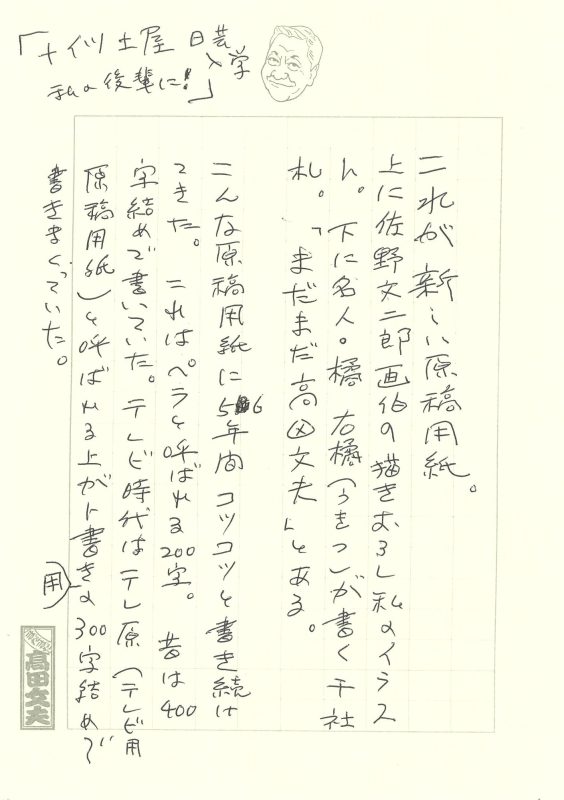 「ナイツ土屋 日芸入学
私の後輩に!」
これが新しい原稿用紙。
上に佐野文二郎画伯の描きおろし私のイラス
ト。下に名人。橘右橘(うきつ)が書く千社
札。「まだまだ高田文夫」とある。
こんな原稿用紙に56年間コツコツと書き続け
てきた。これはペラと呼ばれる200字。昔は400
字結めで書いていた。テレビ時代はテレ原(テレビ用
原稿用紙)と呼ばれる上がト書き用の300字結めで
書きまくっていた。
高田文夫